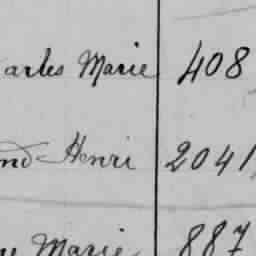 arles Marie 408
nd Henri 2041
Marie 887